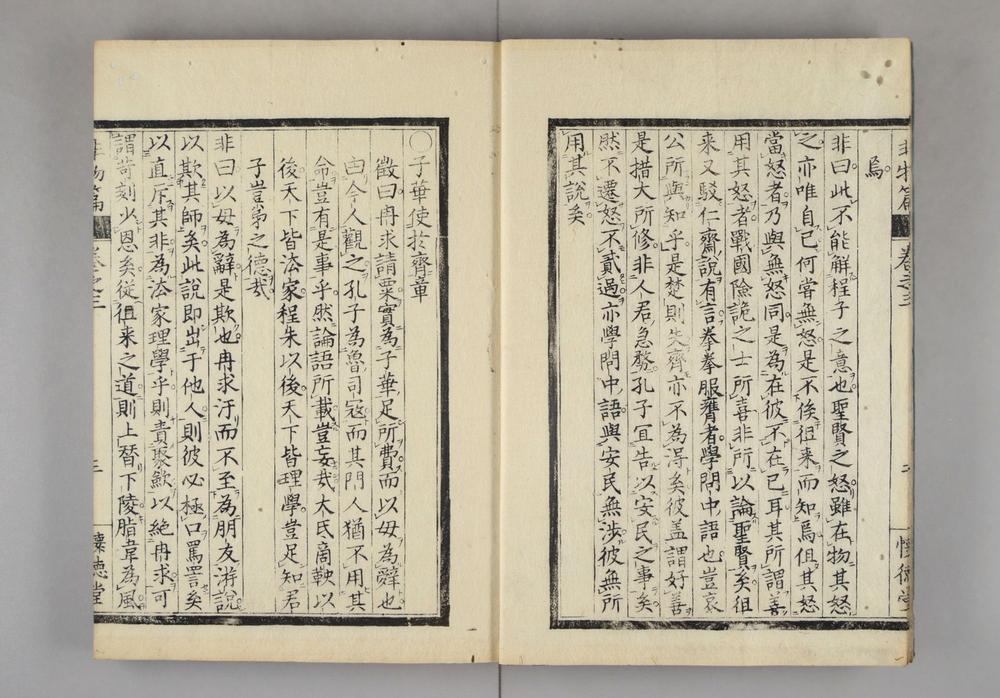 非物篇 卷之三 二 懷德堂
烏
非曰此不能解程子之意也聖賢之怒雖在物其怒
之亦唯自己何嘗無怒是不俟徂来而知焉但其怒
當怒者乃與無怒同是為在彼不在已耳其所謂善
用其怒者戰國險詭之士所喜非所以論聖賢矣徂
来又駁仁齋說有言拳拳服膺者學問中語也豈哀
公所與知乎是楚則失齊亦不為得矣彼蓋謂好善
是措大所修非人君急務孔子宜告以安民之事矣
然不遷怒不貳過亦學問中語與安民無涉彼無所
用其說矣
○子華使於齊章
徵曰冉求請粟實為子華足所費而以母為辭也
由今人觀之孔子為魯司寇而其門人猶不用其
命豈有是事乎然論語所載豈妄哉大氐商鞅以
後天下皆法家程朱以後天下皆理學豈足知君
子豈弟之德哉
非曰以母為辭是欺也冉求汙而不至為朋友游說
以欺其師矣此說即出于他人則彼必極口罵詈矣
以直斥其非為法家理學乎則責聚斂以絶冉求可
謂苛刻少恩矣従徂来之道則上替下陵脂韋為風
非物篇 卷之三 三 懷德堂